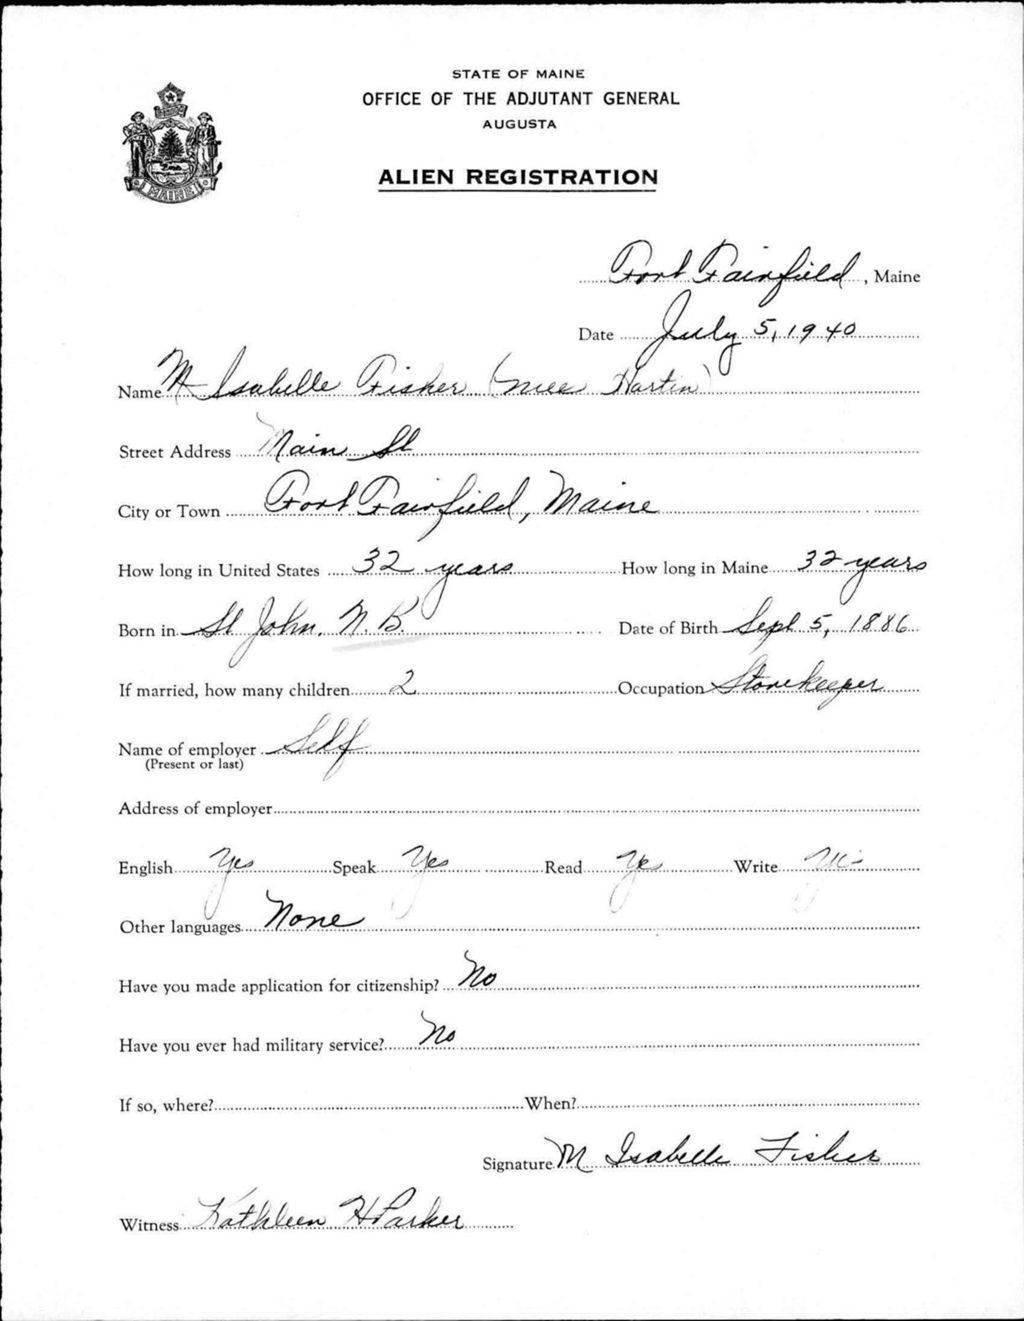 STATE OF MAINE
OFFICE OF THE ADJUTANT GENERAL
AUGUSTA
ALIEN REGISTRATION
MAINE
Fort Fairfield, Maine
Date July 5, 1940
Name M Isabelle Fisher (nee Hartin)
Street Address Main St
City or Town Fort Fairfield, Maine
How long in United States 32 years How long in Maine 32 years
Born in St John, N.B. Date of Birth Sept 5, 1886
If married, how many children 2 Occupation Storekeeper
Name of employer Self
(Present or last)
Address of employer
English Yes Speak Yes Read Yes Write Yes
Other languages None
Have you made application for citizenship? No
Have you ever had military service? No
If so, where? When?
Signature M Isabelle Fisher
Witness Kathleen H Parker